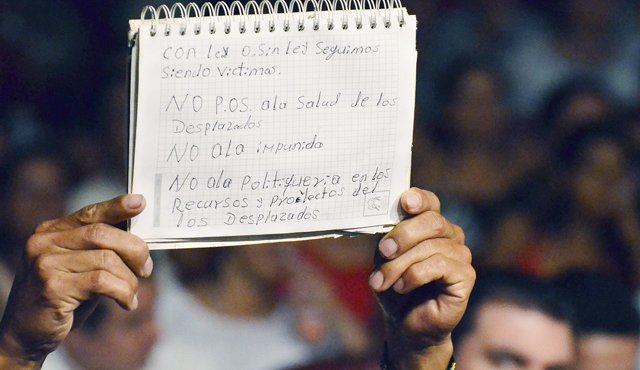 CON Ley O.Sin ley Seguimos
Siendo Victimas.
NO P.OS. ala Salud de los
Desplazados
NO ala impunida
NO ala Politiqueria en los
Recursos y Proyectos del
los Desplazados